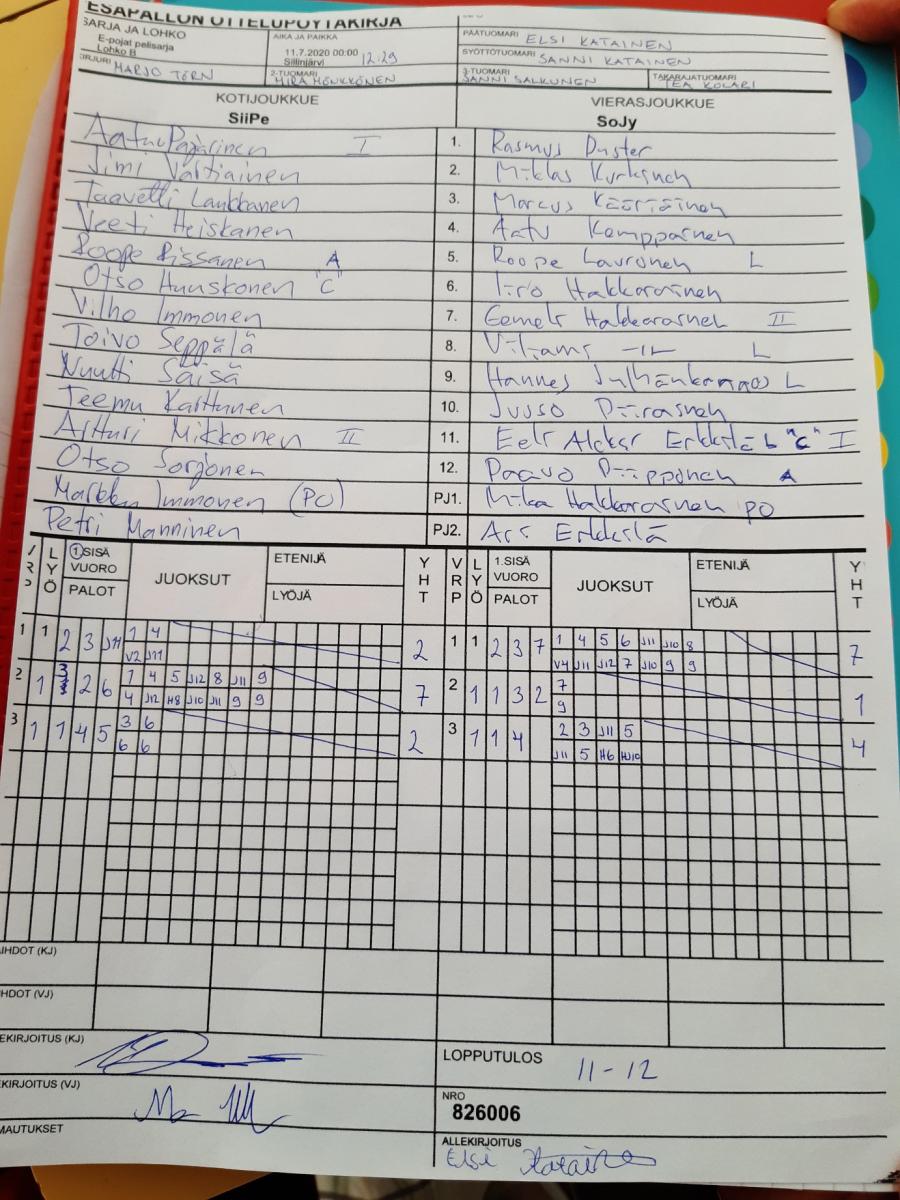 ESÄPALLON OTTELUPÖYTÄKIRJA
SARJA JA LOHKO
E-pojat pelisarja
Lohko B
AIKA JA PAIKKA
11.7.2020 00:00 12.29
Siilinjärvi
PÄÄTUOMARI ELSI KATAINEN
SYÖTTÖTUOMARI SANNI KATAINEN
KIRJURI MARJO TÖRN
2-TUOMARI MIRA MÖNKKÖNEN
3-TUOMARI SANNI SALKUNEN
TAKARAJATUOMARI TEA KOLARI
KOTIJOUKKUE VIERASJOUKKUE
SiiPe SoJy
Aatu Pajarinen I 1. Rasmus Duster
Jimi Vartiainen 2. Miklas Kurkinen
Taavetti Laukkanen 3. Marcus Kääriäinen
Veeti Heiskanen 4. Aatu Kemppainen
Roope Rissanen A 5. Roope Lauronen L
Otso Huuskonen "C" 6. Iiro Hakkarainen
Vilho Immonen 7. Eemeli Hakkarainen II
Toivo Seppälä 8. Viljami -||- L
Nuutti Säisä 9. Hannes Julhänkangas L
Teemu Karttunen 10. Juuso Piirainen
Artturi Mikkonen II 11. Eeli Aleksi Erkkilä L "C" I
Otso Sorjonen 12. Paavo Piipponen A
Markku Immonen (PO) PJ1. Mika Hakkarainen PO
Petri Manninen PJ2. Ari Erkkilä
VRP LYÖ 1.SISÄ VUORO PALOT JUOKSUT ETENIJÄ LYÖJÄ YHT VRP LYÖ 1.SISÄ VUORO PALOT JUOKSUT ETENIJÄ LYÖJÄ YHT
1 1 2 3 J11 1 4 2 1 1 2 3 7 1 4 5 6 J11 J10 8 7
V2 J11 V4 J11 J12 7 J10 9 9
2 1 3 2 6 1 4 5 J12 8 J11 9 7 2 1 1 3 2 7 1
4 J12 H8 J10 J11 9 9 9
3 1 1 4 5 3 6 2 3 1 1 4 2 3 J11 5 4
6 6 J11 5 H6 HJ10
IHDOT (KJ)
HDOT (VJ)
EKIRJOITUS (KJ)
LOPPUTULOS 11-12
EKIRJOITUS (VJ)
NRO
826006
MAUTUKSET
ALLEKIRJOITUS
Elsi Katainen